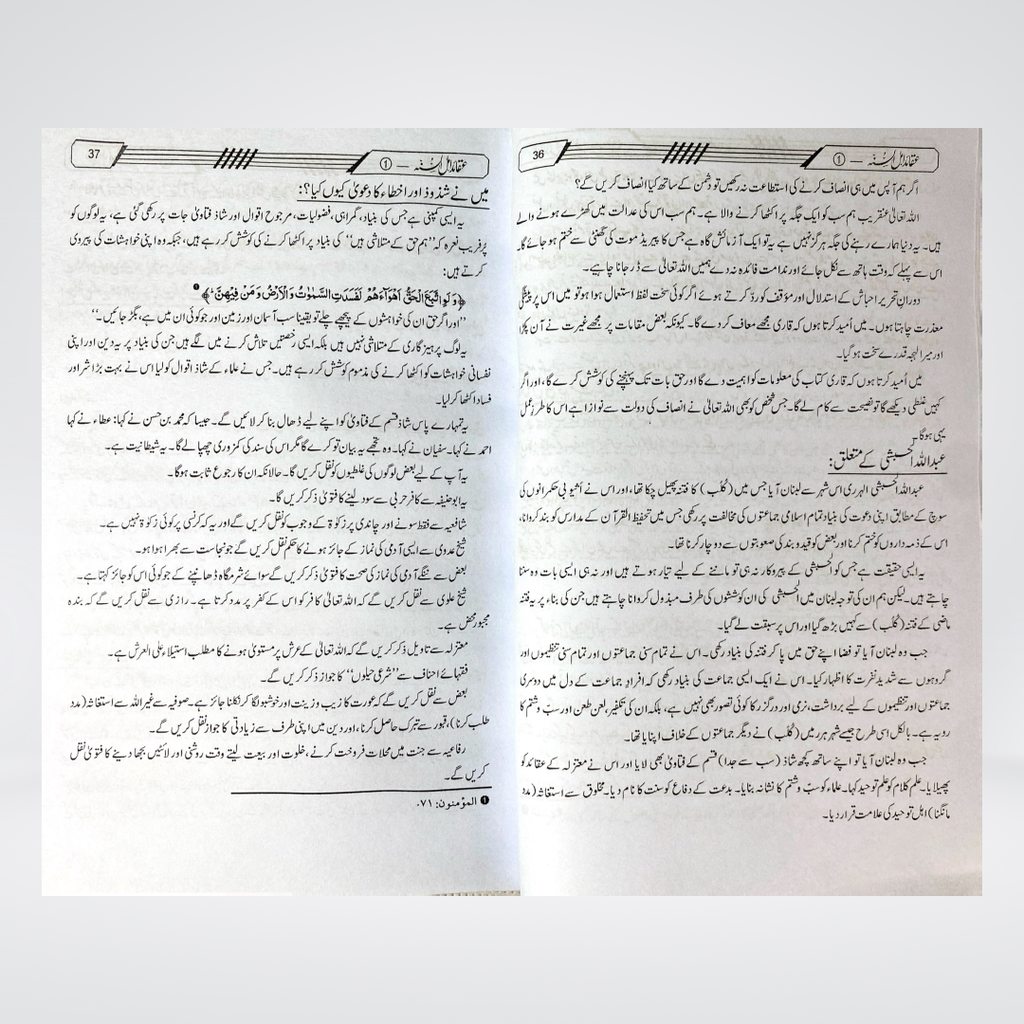 عقائد اہل السُّنّہ — ①
36
اگر ہم آپس میں ہی انصاف کرنے کی استطاعت نہ رکھیں تو دشمن کے ساتھ کیا انصاف کریں گے؟
اللہ تعالیٰ عنقریب ہم سب کو ایک جگہ پر اکٹھا کرنے والا ہے۔ ہم سب اس کی عدالت میں کھڑے ہونے والے
ہیں۔ یہ دنیا ہمارے رہنے کی جگہ ہرگز نہیں ہے یہ تو ایک آزمائش گاہ ہے جس کا پیریڈ موت کی گھنٹی سے ختم ہو جائے گا۔
اس سے پہلے کہ وقت ہاتھ سے نکل جائے اور ندامت فائدہ نہ دے ہمیں اللہ تعالیٰ سے ڈر جانا چاہیے۔
دورانِ تحریر احباش کے استدلال اور مؤقف کو ردّ کرتے ہوئے اگر کوئی سخت لفظ استعمال ہوا ہو تو میں اس پر پیشگی
معذرت چاہتا ہوں۔ میں اُمید کرتا ہوں کہ قاری مجھے معاف کر دے گا۔ کیونکہ بعض مقامات پر مجھے غیرت نے آن پکڑا
اور میرا لہجہ قدرے سخت ہو گیا۔
میں اُمید کرتا ہوں کہ قاری کتاب کی معلومات کو اہمیت دے گا اور حق بات تک پہنچنے کی کوشش کرے گا، اور اگر
کہیں غلطی دیکھے گا تو نصیحت سے کام لے گا۔ جس شخص کو بھی اللہ تعالیٰ نے انصاف کی دولت سے نوازا ہے اس کا طرزِ عمل
یہی ہو گا۔
عبداللہ الحبشی کے متعلق:
عبداللہ الحبشی الہرری اس شہر سے لبنان آیا جس میں (کُلب) کا فتنہ پھیل چکا تھا، اور اس نے اُثیوبی حکمرانوں کی
سوچ کے مطابق اپنی دعوت کی بنیاد تمام اسلامی جماعتوں کی مخالفت پر رکھی جس میں تحفیظ القرآن کے مدارس کو بند کروانا،
اس کے ذمہ داروں کو ختم کرنا اور بعض کو قید و بند کی صعوبتوں سے دوچار کرنا تھا۔
یہ ایسی حقیقت ہے جس کو الحبشی کے پیروکار نہ ہی تو ماننے کے لیے تیار ہوتے ہیں اور نہ ہی ایسی بات وہ سننا
چاہتے ہیں۔ لیکن ہم ان کی توجہ لبنان میں الحبشی کی ان کوششوں کی طرف مبذول کروانا چاہتے ہیں جن کی بناء پر یہ فتنہ
ماضی کے فتنہ (کُلب) سے کہیں بڑھ گیا اور اس پر سبقت لے گیا۔
جب وہ لبنان آیا تو فضا اپنے حق میں پا کر فتنہ کی بنیاد رکھی۔ اس نے تمام سنی جماعتوں اور تمام سنی تنظیموں اور
گروہوں سے شدید نفرت کا اظہار کیا۔ اس نے ایک ایسی جماعت کی بنیاد رکھی کہ افرادِ جماعت کے دل میں دوسری
جماعتوں اور تنظیموں کے لیے برداشت، نرمی اور درگزر کا کوئی تصور بھی نہیں ہے، بلکہ ان کی تکفیر، لعن طعن اور سبّ و شتم کا
رویہ ہے۔ بالکل اسی طرح جیسے شہر ہرر میں (کُلب) نے دیگر جماعتوں کے خلاف اپنایا تھا۔
جب وہ لبنان آیا تو اپنے ساتھ کچھ شاذ (سب سے جدا) قسم کے فتاویٰ بھی لایا اور اس نے معتزلہ کے عقائد کو
پھیلایا۔ علم کلام کو علم توحید کہا۔ علماء کو سبّ و شتم کا نشانہ بنایا۔ بدعت کے دفاع کو سنت کا نام دیا۔ مخلوق سے استغاثہ (مدد
مانگنا) اہل توحید کی علامت قرار دیا۔
عقائد اہل السُّنّہ — ①
37
میں نے شذوذ اور اخطاء کا دعویٰ کیوں کیا؟:
یہ ایسی کمپنی ہے جس کی بنیاد، گمراہی، فضولیات، مرجوح اقوال اور شاذ فتاویٰ جات پر رکھی گئی ہے، یہ لوگوں کو
پُرفریب نعرہ کہ ''ہم حق کے متلاشی ہیں'' کی بنیاد پر اکٹھا کرنے کی کوشش کر رہے ہیں، جبکہ وہ اپنی خواہشات کی پیروی
کرتے ہیں:
﴿وَلَوِ اتَّبَعَ الْحَقُّ اَهْوَآءَهُمْ لَفَسَدَتِ السَّمٰوٰتُ وَ الْاَرْضُ وَ مَنْ فِيْهِنَّ ؕ﴾ ❶
''اور اگر حق ان کی خواہشوں کے پیچھے چلے تو یقیناً سب آسمان اور زمین اور جو کوئی ان میں ہے، بگڑ جائیں۔''
یہ لوگ پرہیزگاری کے متلاشی نہیں ہیں بلکہ ایسی رخصتیں تلاش کرنے میں لگے ہیں جن کی بنیاد پر یہ دین اور اپنی
نفسانی خواہشات کو اکٹھا کرنے کی مذموم کوشش کر رہے ہیں۔ جس نے علماء کے شاذ اقوال کو لیا اس نے بہت بڑا شر اور
فساد اکٹھا کر لیا۔
یہ تمہارے پاس شاذ قسم کے فتاویٰ کو اپنے لیے ڈھال بنا کر لائیں گے۔ جیسا کہ محمد بن حسن نے کہا: عطاء نے کہا
احمد نے کہا۔ سفیان نے کہا۔ وہ تجھے یہ بیان تو کرے گا مگر اس کی سند کی کمزوری چھپا لے گا۔ یہ شیطانیت ہے۔
یہ آپ کے لیے بعض لوگوں کی غلطیوں کو نقل کریں گا۔ حالانکہ ان کا رجوع ثابت ہو گا۔
یہ ابوحنیفہ سے کافر حربی سے سود لینے کا فتویٰ ذکر کریں گا۔
شافعیہ سے فقط سونے اور چاندی پر زکوٰۃ کے وجوب کو نقل کریں گے اور یہ کہ کرنسی پر کوئی زکوٰۃ نہیں ہے۔
شیخ عدوی سے ایسی آدمی کی نماز کے جائز ہونے کا حکم نقل کریں گے جو نجاست سے بھرا ہوا ہو۔
بعض سے ننگے آدمی کی نماز کی صحت کا فتویٰ ذکر کریں گے سوائے شرمگاہ ڈھانپنے کے جو کوئی اس کو جائز کہتا ہے۔
شیخ علوی سے نقل کریں گے کہ اللہ تعالیٰ کافر کو اس کے کفر پر مدد کرتا ہے۔ رازی سے نقل کریں گے کہ بندہ
مجبور محض ہے۔
معتزلہ سے تاویل ذکر کریں گے کہ اللہ تعالیٰ کے عرش پر مستوی ہونے کا مطلب استیلاء علی العرش ہے۔
فقہائے احناف سے ''شرعی حیلوں'' کا جواز ذکر کریں گے۔
بعض سے نقل کریں گے کہ عورت کا زیب و زینت اور خوشبو لگا کر نکلنا جائز ہے۔ صوفیہ سے غیر اللہ سے استغاثہ (مدد
طلب کرنا)، قبور سے تبرک حاصل کرنا، اور دین میں اپنی طرف سے زیادتی کا جواز نقل کریں گے۔
رفاعیہ سے جنت میں محلات فروخت کرنے، خلوت اور بیعت لیتے وقت روشنی اور لائٹیں بجھا دینے کا فتویٰ نقل
کریں گے۔
❶ المؤمنون: ۰۷۱